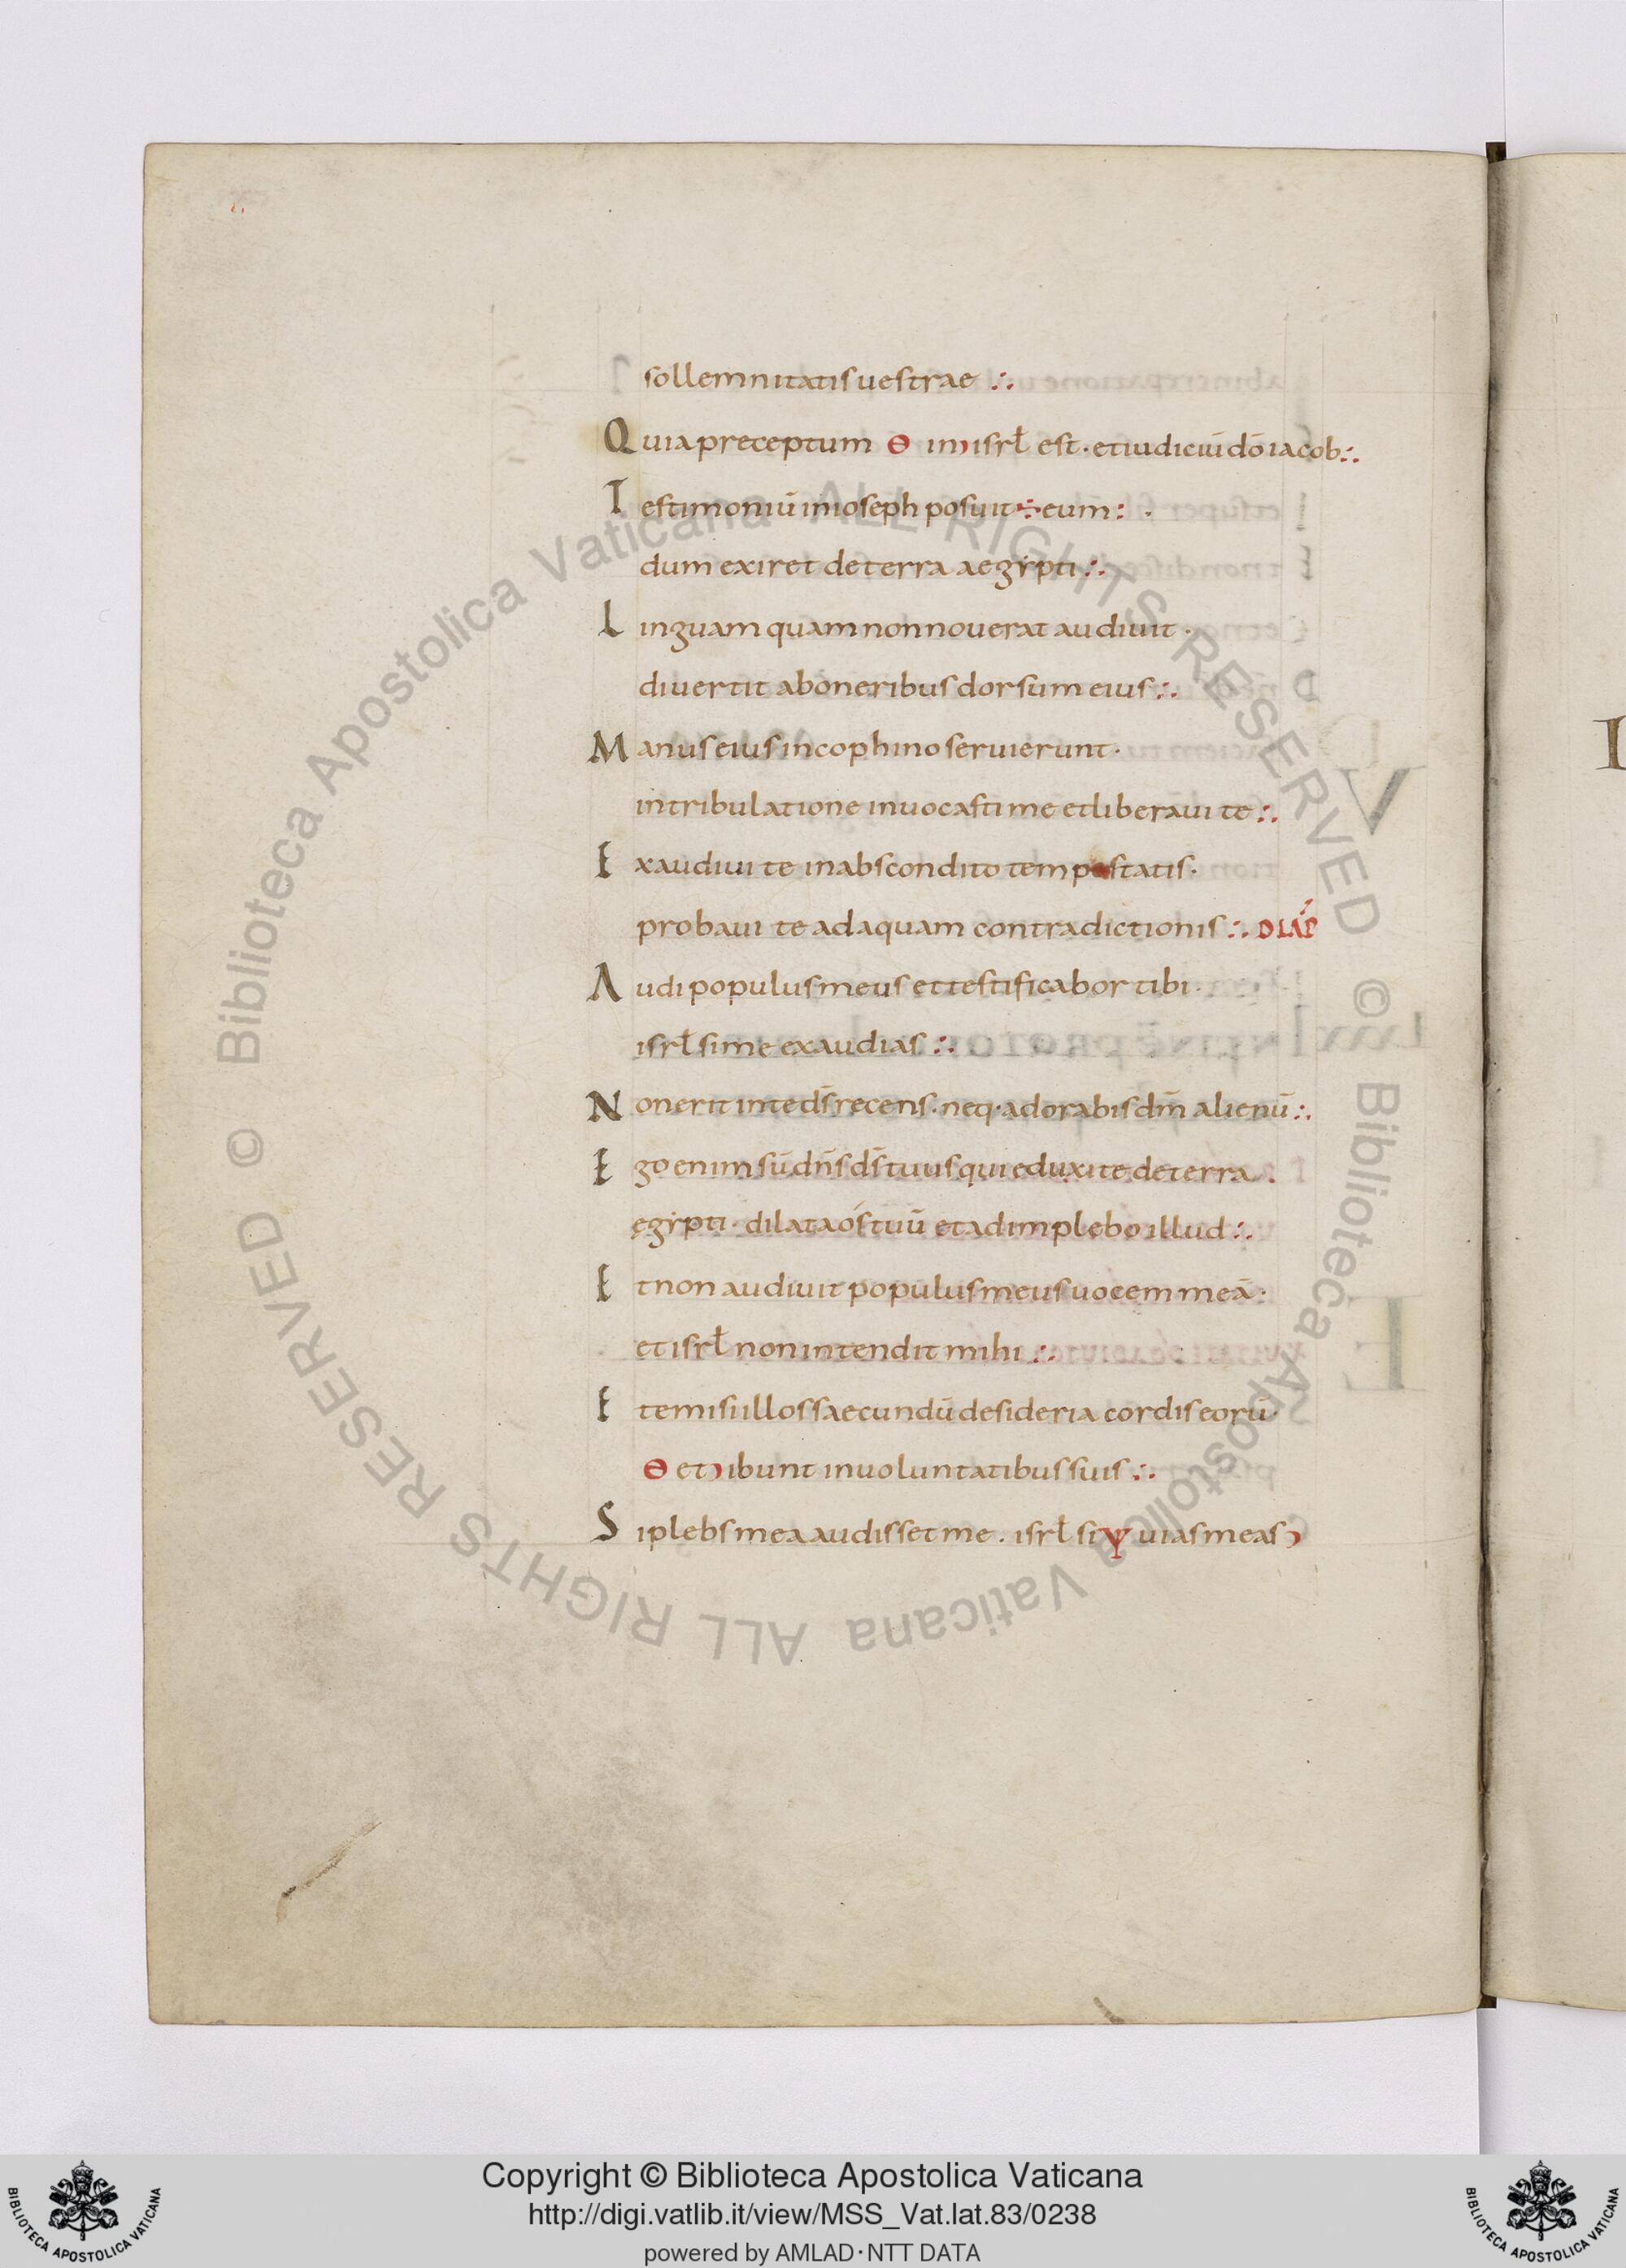 sollemnitatis uestrae :.
Quia preceptum ϴ in) isrł est · et iudiciū dō iacob :.
Testimoniū in ioseph posuit ÷ eum : ·
dum exiret de terra aegypti :.
Linguam quam non nouerat audiuit ·
diuertit ab oneribus dorsum eius :.
Manus eius in cophino seruierunt ·
in tribulatione inuocasti me et liberaui te :.
Exaudiui te in abscondito tempestatis ·
probaui te ad aquam contradictionis :. DIAP
Audi populus meus et testificabor tibi ·
isrł si me exaudias :.
Non erit in te ds̄ recens · neq · adorabis dm̄ alienū :.
Ego enim sū dn̄s ds̄ tuus qui eduxi te de terra
egypti · dilata ós tuū et adimplebo illud :.
Et non audiuit populus meus uocem meā ·
et isrł non intendit mihi :.
Et emisi illos saecundū desideria cordis eorū ·
ϴ et) ibunt in uoluntatibus suis :.
Si plebs mea audisset me . isrł si Ɣ uias meas)
Copyright © Biblioteca Apostolica Vaticana
http://digi.vatlib.it/view/MSS_Vat.lat.83/0238
powered by AMLAD · NTT DATA
BIBLIOTECA APOSTOLICA VATICANA
BIBLIOTECA APOSTOLICA VATICANA
© Biblioteca Apostolica Vaticana ALL RIGHTS RESERVED © Biblioteca Apostolica Vaticana ALL RIGHTS RESERVED